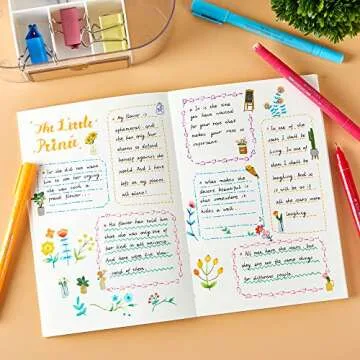 The Little
Prince
For she did not want
him to see her crying.
She was such a
proud flower..
My flower is
ephemeral, and
she has only four
thorns to defend
herself against the
world. And I have
left on my planet,
all alone!
My flower has told him
that she was only one of
her kind in all universe.
And here were five thou-
sand of them
It is the time
you have wasted
for your rose that
makes your rose so
important.
What makes the
desert beautiful is
that somewhere it
hides a well.
In one of the
stars I shall be
living. In one of
them I shall be
laughing. And so
it will be as if
all stars were
laughing.
All men have the stars, but
they are not the same things
for different people.